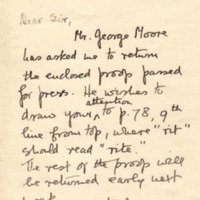 Dear Sir,
Mr. George Moore
has asked me to return
the enclosed proofs passed
for press. He wishes to
attention
draw your ^ to p. 78, 9th
line from top, where "rit"
should read "rite."
The rest of the proofs will
be returned early next